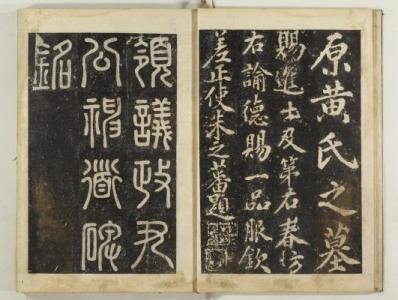 原黄氏之墓
賜進士及第右春坊
右諭德賜一品服欽
差正使朱之蕃題
領議政尹
公神道碑
銘